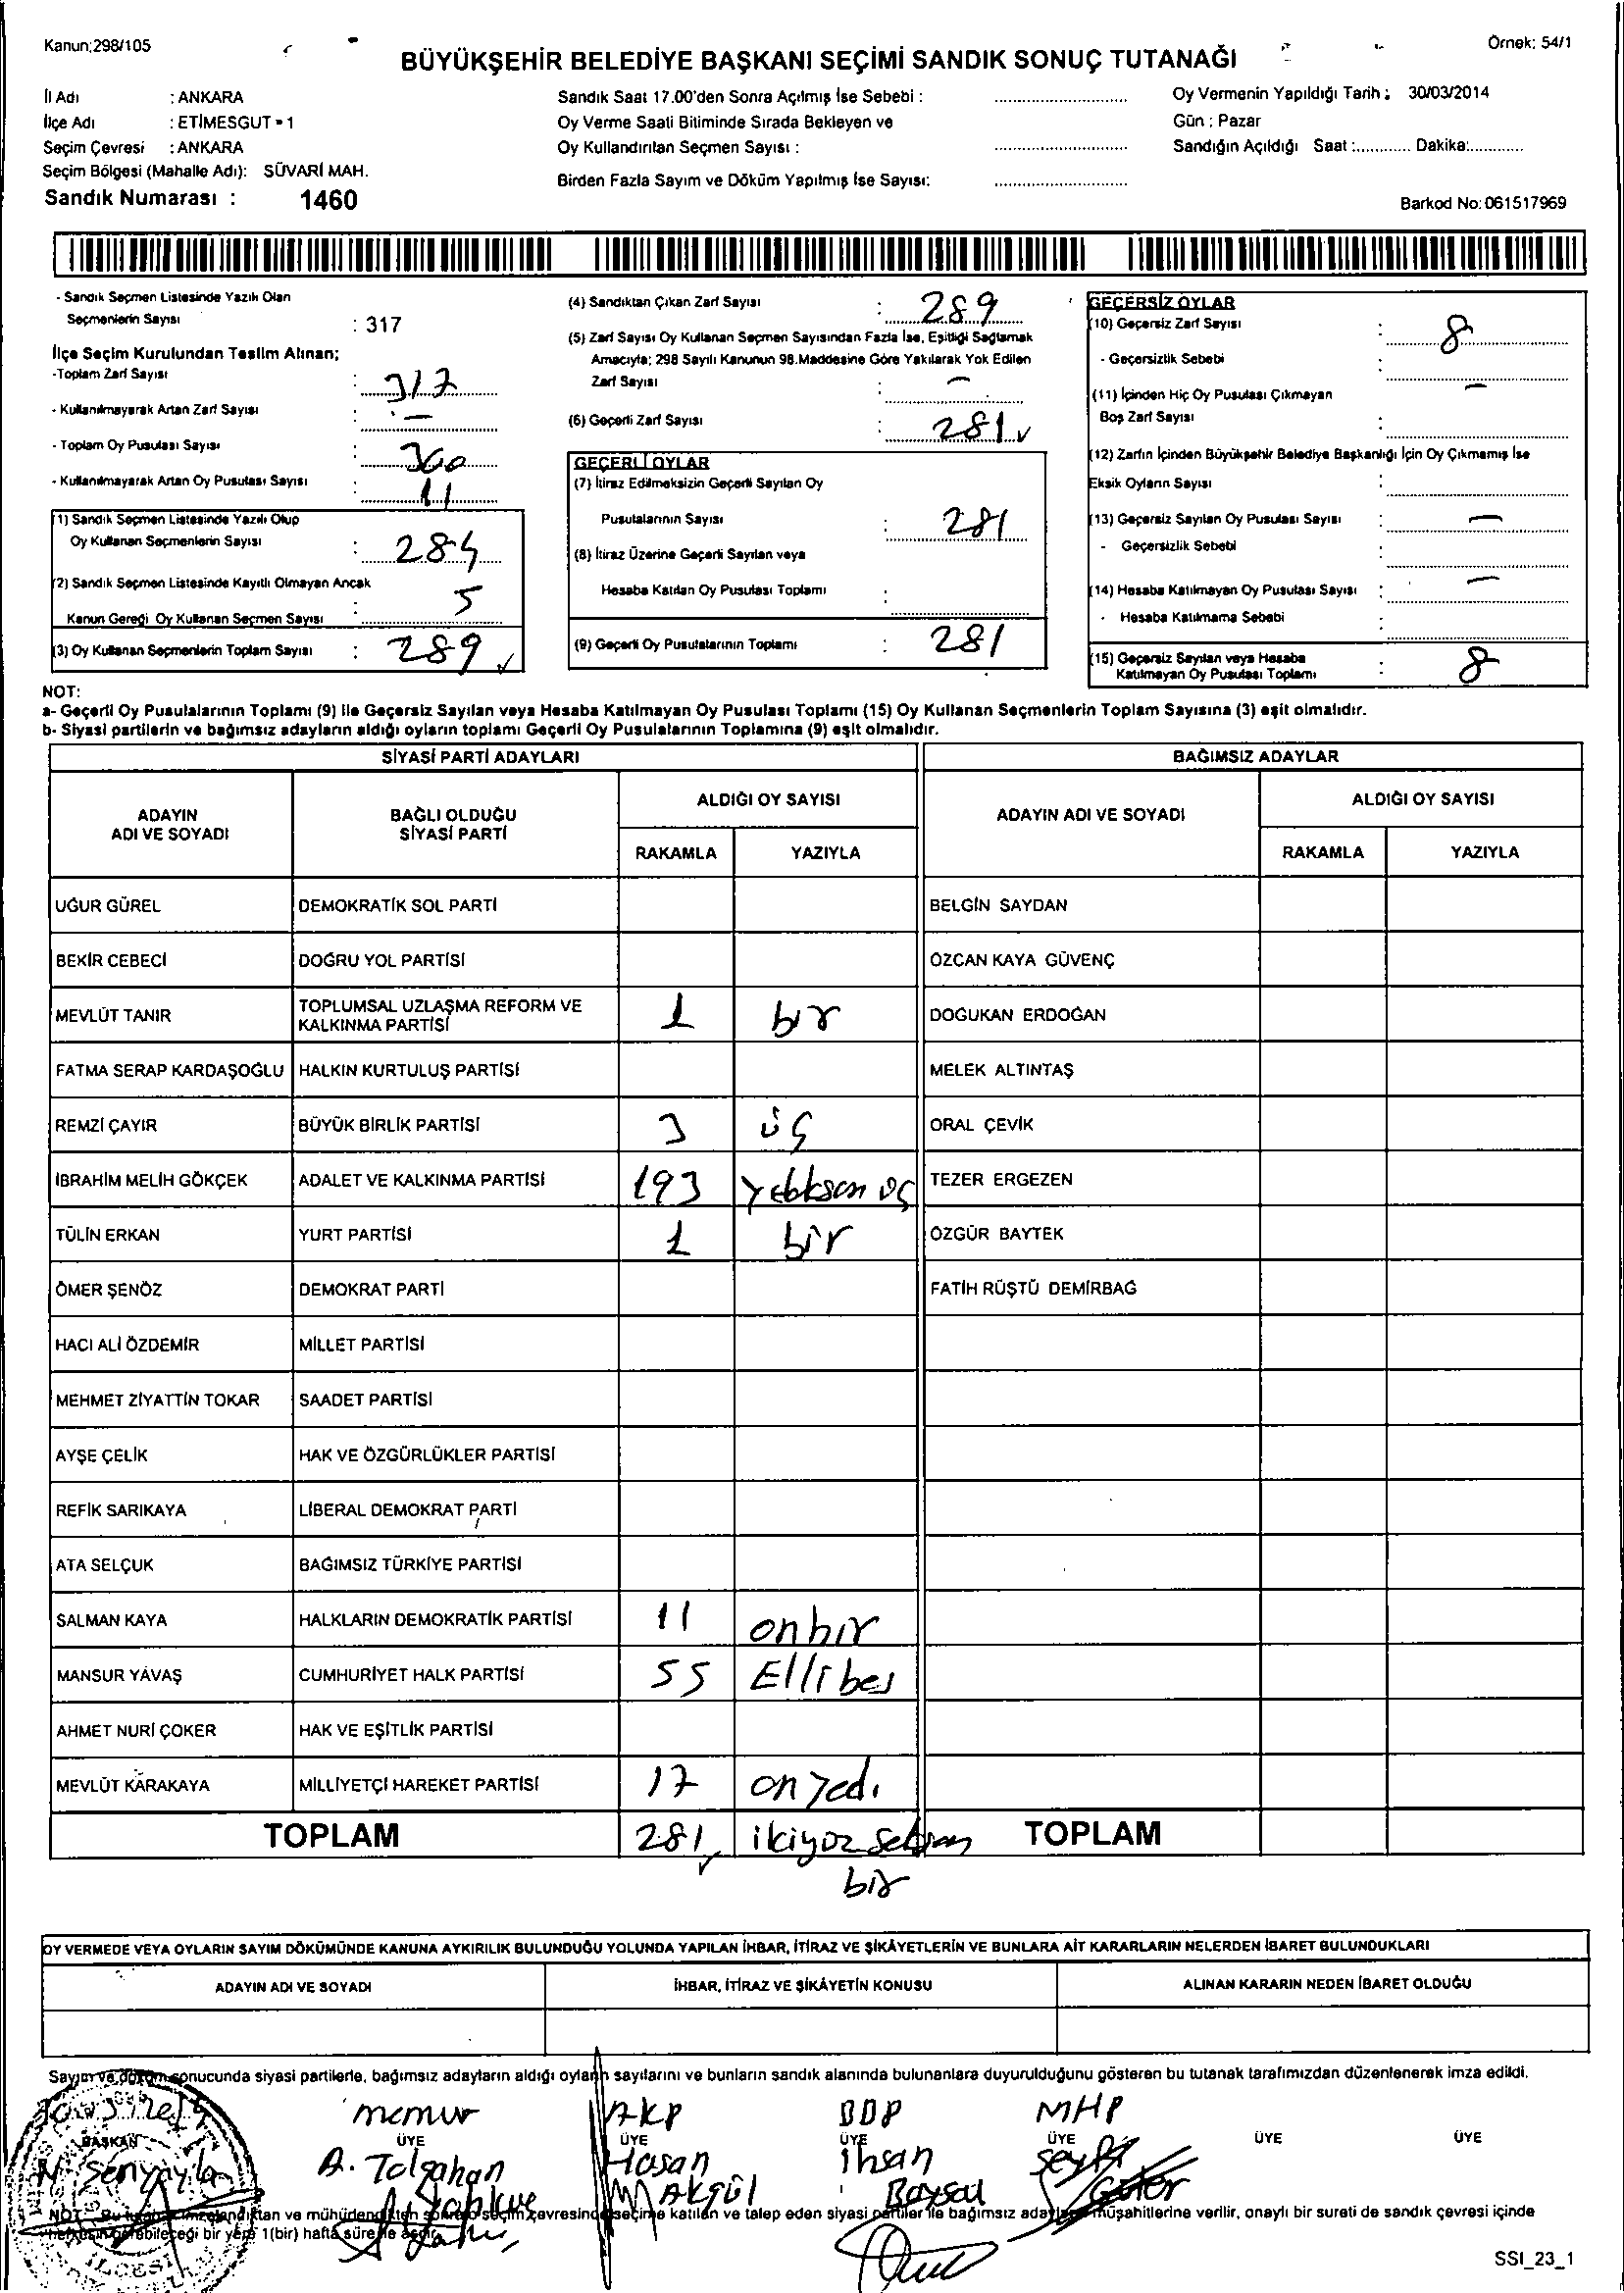 Kanun:298/105
Örnek: 54/1
BÜYÜKŞEHİR BELEDİYE BAŞKANI SEÇİMİ SANDIK SONUÇ TUTANAĞI
İl Adı : ANKARA
İlçe Adı : ETİMESGUT - 1
Seçim Çevresi : ANKARA
Seçim Bölgesi (Mahalle Adı): SÜVARİ MAH.
Sandık Numarası : 1460
Sandık Saat 17.00'den Sonra Açılmış İse Sebebi :
Oy Verme Saati Bitiminde Sırada Bekleyen ve
Oy Kullandırılan Seçmen Sayısı :
Birden Fazla Sayım ve Döküm Yapılmış İse Sayısı:
Oy Vermenin Yapıldığı Tarih : 30/03/2014
Gün : Pazar
Sandığın Açıldığı Saat :............ Dakika:............
Barkod No: 061517969
- Sandık Seçmen Listesinde Yazılı Olan
Seçmenlerin Sayısı : 317
İlçe Seçim Kurulundan Teslim Alınan;
-Toplam Zarf Sayısı : 317
- Kullanılmayarak Artan Zarf Sayısı : -
- Toplam Oy Pusulası Sayısı : 300
- Kullanılmayarak Artan Oy Pusulası Sayısı : 11
(1) Sandık Seçmen Listesinde Yazılı Olup
Oy Kullanan Seçmenlerin Sayısı : 284
(2) Sandık Seçmen Listesinde Kayıtlı Olmayan Ancak
Kanun Gereği Oy Kullanan Seçmen Sayısı : 5
(3) Oy Kullanan Seçmenlerin Toplam Sayısı : 289 ✓
(4) Sandıktan Çıkan Zarf Sayısı : 289
(5) Zarf Sayısı Oy Kullanan Seçmen Sayısından Fazla İse, Eşitliği Sağlamak
Amacıyla; 298 Sayılı Kanunun 98.Maddesine Göre Yakılarak Yok Edilen
Zarf Sayısı : -
(6) Geçerli Zarf Sayısı : 281 ✓
GEÇERLİ OYLAR
(7) İtiraz Edilmeksizin Geçerli Sayılan Oy
Pusulalarının Sayısı : 281
(8) İtiraz Üzerine Geçerli Sayılan veya
Hesaba Katılan Oy Pusulası Toplamı :
(9) Geçerli Oy Pusulalarının Toplamı : 281
GEÇERSİZ OYLAR
(10) Geçersiz Zarf Sayısı : 8
- Geçersizlik Sebebi :
(11) İçinden Hiç Oy Pusulası Çıkmayan -
Boş Zarf Sayısı :
(12) Zarfın İçinden Büyükşehir Belediye Başkanlığı İçin Oy Çıkmamış İse
Eksik Oyların Sayısı :
(13) Geçersiz Sayılan Oy Pusulası Sayısı : -
- Geçersizlik Sebebi :
(14) Hesaba Katılmayan Oy Pusulası Sayısı : -
- Hesaba Katılmama Sebebi :
(15) Geçersiz Sayılan veya Hesaba
Katılmayan Oy Pusulası Toplamı : 8
NOT:
a- Geçerli Oy Pusulalarının Toplamı (9) ile Geçersiz Sayılan veya Hesaba Katılmayan Oy Pusulası Toplamı (15) Oy Kullanan Seçmenlerin Toplam Sayısına (3) eşit olmalıdır.
b- Siyasi partilerin ve bağımsız adayların aldığı oyların toplamı Geçerli Oy Pusulalarının Toplamına (9) eşit olmalıdır.
SİYASİ PARTİ ADAYLARI BAĞIMSIZ ADAYLAR
ADAYIN ADI VE SOYADI
BAĞLI OLDUĞU SİYASİ PARTİ
ALDIĞI OY SAYISI
RAKAMLA YAZIYLA
ADAYIN ADI VE SOYADI
ALDIĞI OY SAYISI
RAKAMLA YAZIYLA
UĞUR GÜREL DEMOKRATİK SOL PARTİ BELGİN SAYDAN
BEKİR CEBECİ DOĞRU YOL PARTİSİ ÖZCAN KAYA GÜVENÇ
MEVLÜT TANIR TOPLUMSAL UZLAŞMA REFORM VE KALKINMA PARTİSİ 1 bir DOĞUKAN ERDOĞAN
FATMA SERAP KARDAŞOĞLU HALKIN KURTULUŞ PARTİSİ MELEK ALTINTAŞ
REMZİ ÇAYIR BÜYÜK BİRLİK PARTİSİ 3 üç ORAL ÇEVİK
İBRAHİM MELİH GÖKÇEK ADALET VE KALKINMA PARTİSİ 193 üç TEZER ERGEZEN
TÜLİN ERKAN YURT PARTİSİ 1 bir ÖZGÜR BAYTEK
ÖMER ŞENÖZ DEMOKRAT PARTİ FATİH RÜŞTÜ DEMİRBAĞ
HACI ALİ ÖZDEMİR MİLLET PARTİSİ
MEHMET ZİYATTİN TOKAR SAADET PARTİSİ
AYŞE ÇELİK HAK VE ÖZGÜRLÜKLER PARTİSİ
REFİK SARIKAYA LİBERAL DEMOKRAT PARTİ
ATA SELÇUK BAĞIMSIZ TÜRKİYE PARTİSİ
SALMAN KAYA HALKLARIN DEMOKRATİK PARTİSİ 11 onbir
MANSUR YAVAŞ CUMHURİYET HALK PARTİSİ 55 Ellibeş
AHMET NURİ ÇOKER HAK VE EŞİTLİK PARTİSİ
MEVLÜT KARAKAYA MİLLİYETÇİ HAREKET PARTİSİ 17 onyedi
TOPLAM 281 ✓ ikiyüz seksen TOPLAM
bir
OY VERMEDE VEYA OYLARIN SAYIM DÖKÜMÜNDE KANUNA AYKIRILIK BULUNDUĞU YOLUNDA YAPILAN İHBAR, İTİRAZ VE ŞİKÂYETLERİN VE BUNLARA AİT KARARLARIN NELERDEN İBARET BULUNDUKLARI
ADAYIN ADI VE SOYADI İHBAR, İTİRAZ VE ŞİKÂYETİN KONUSU ALINAN KARARIN NEDEN İBARET OLDUĞU
Sayım ve döküm sonucunda siyasi partilerle, bağımsız adayların aldığı oyların sayılarını ve bunların sandık alanında bulunanlara duyurulduğunu gösteren bu tutanak tarafımızdan düzenlenerek imza edildi.
memur AKP BDP MHP
BAŞKAN ÜYE ÜYE ÜYE ÜYE ÜYE ÜYE
N. Şenyayla A. Tolgahan Hasan ihsan Seyfi
Akgül Baysal Güler
NOT: Bu tutanak imzalandıktan ve mühürlendikten sonra o seçim çevresinde seçime katılan ve talep eden siyasi partiler ile bağımsız adayların müşahitlerine verilir, onaylı bir sureti de sandık çevresi içinde
herkesin görebileceği bir yere 1(bir) hafta süre ile asılır.
İLÇESİ
SSI_23_1